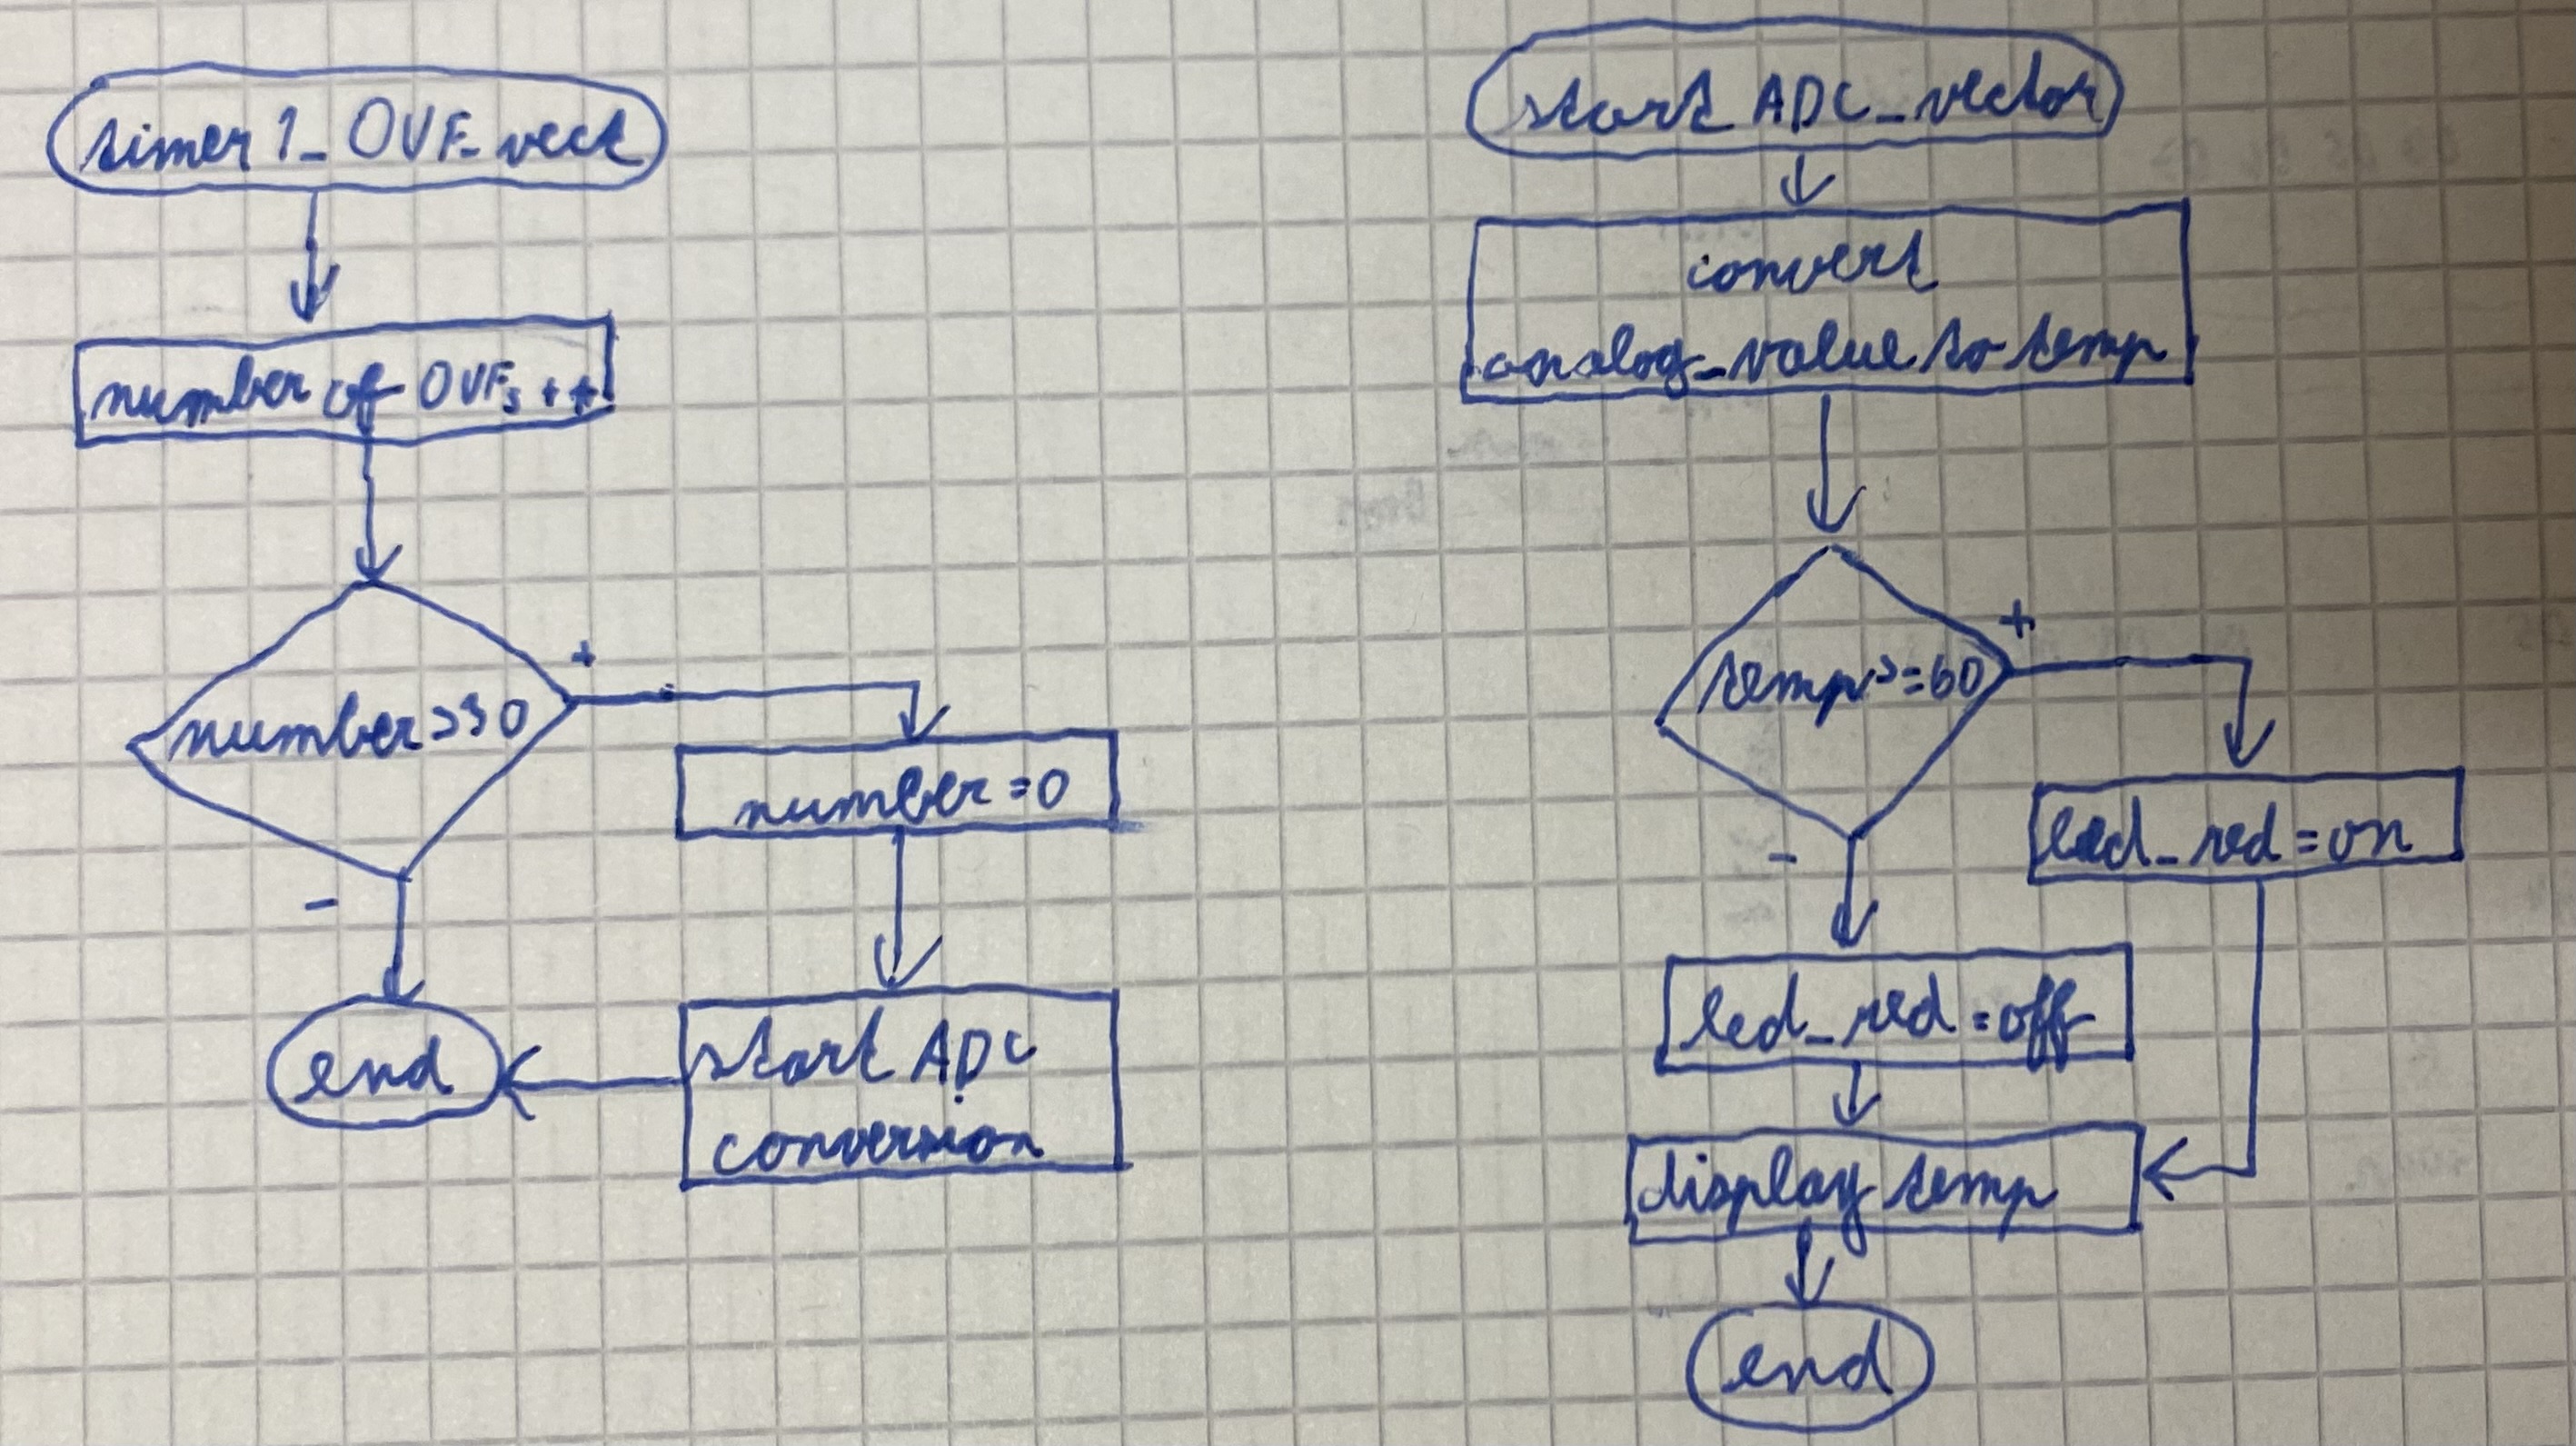 timer1_OVF_vect
number of OVFs++
number>30
+
-
number=0
start ADC
conversion
end
start ADC_vector
convert
analog_value to temp
temp>=60
+
-
led_red=on
led_red=off
display temp
end